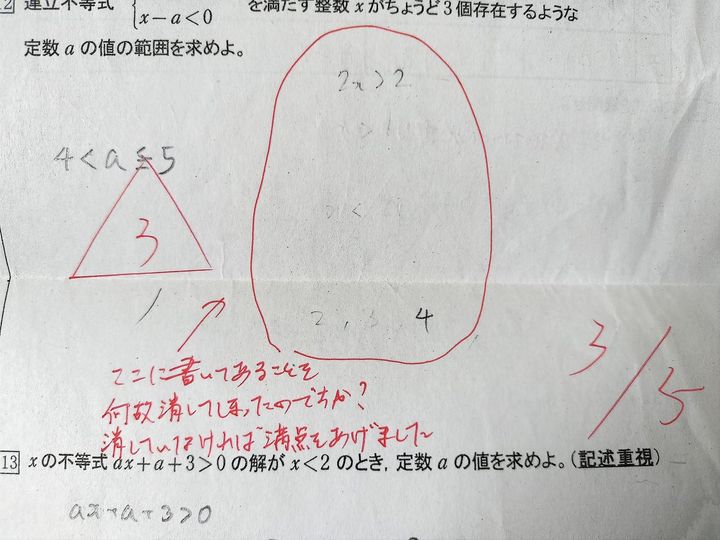 12 連立不等式 { を満たす整数 x がちょうど3個存在するような
x−a<0
定数 a の値の範囲を求めよ。
2x>2
4<a≦5
3
2, 3, 4
ここに書いてあることを
何故消してしまったのですか?
消していなければ満点をあげました
3/5
13 x の不等式 ax+a+3>0 の解が x<2 のとき,定数 a の値を求めよ。(記述重視)
ax+a+3>0